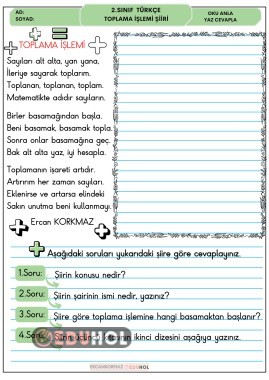 AD:
SOYAD:
2.SINIF TÜRKÇE
TOPLAMA İŞLEMİ ŞİİRİ
OKU ANLA
YAZ CEVAPLA
TOPLAMA İŞLEMİ
Sayıları alt alta, yan yana,
İleriye sayarak toplarım.
Toplanan, toplanan, toplam.
Matematikte adıdır sayıların.
Birler basamağından başla.
Beni basamak, basamak topla.
Sonra onlar basamağına geç.
Bak alt alta yaz, iyi hesapla.
Toplamanın işareti artıdır.
Artırırım her zaman sayıları.
Eklenirse ve artarsa elindeki
Sakın unutma beni kullanmayı.
Ercan KORKMAZ
Aşağıdaki soruları yukarıdaki şiire göre cevaplayınız.
1.Soru: Şiirin konusu nedir?
2.Soru: Şiirin şairinin ismi nedir, yazınız?
3.Soru: Şiire göre toplama işlemine hangi basamaktan başlanır?
4.Soru: Şiirin üçüncü kıtasının ikinci dizesini aşağıya yazınız.